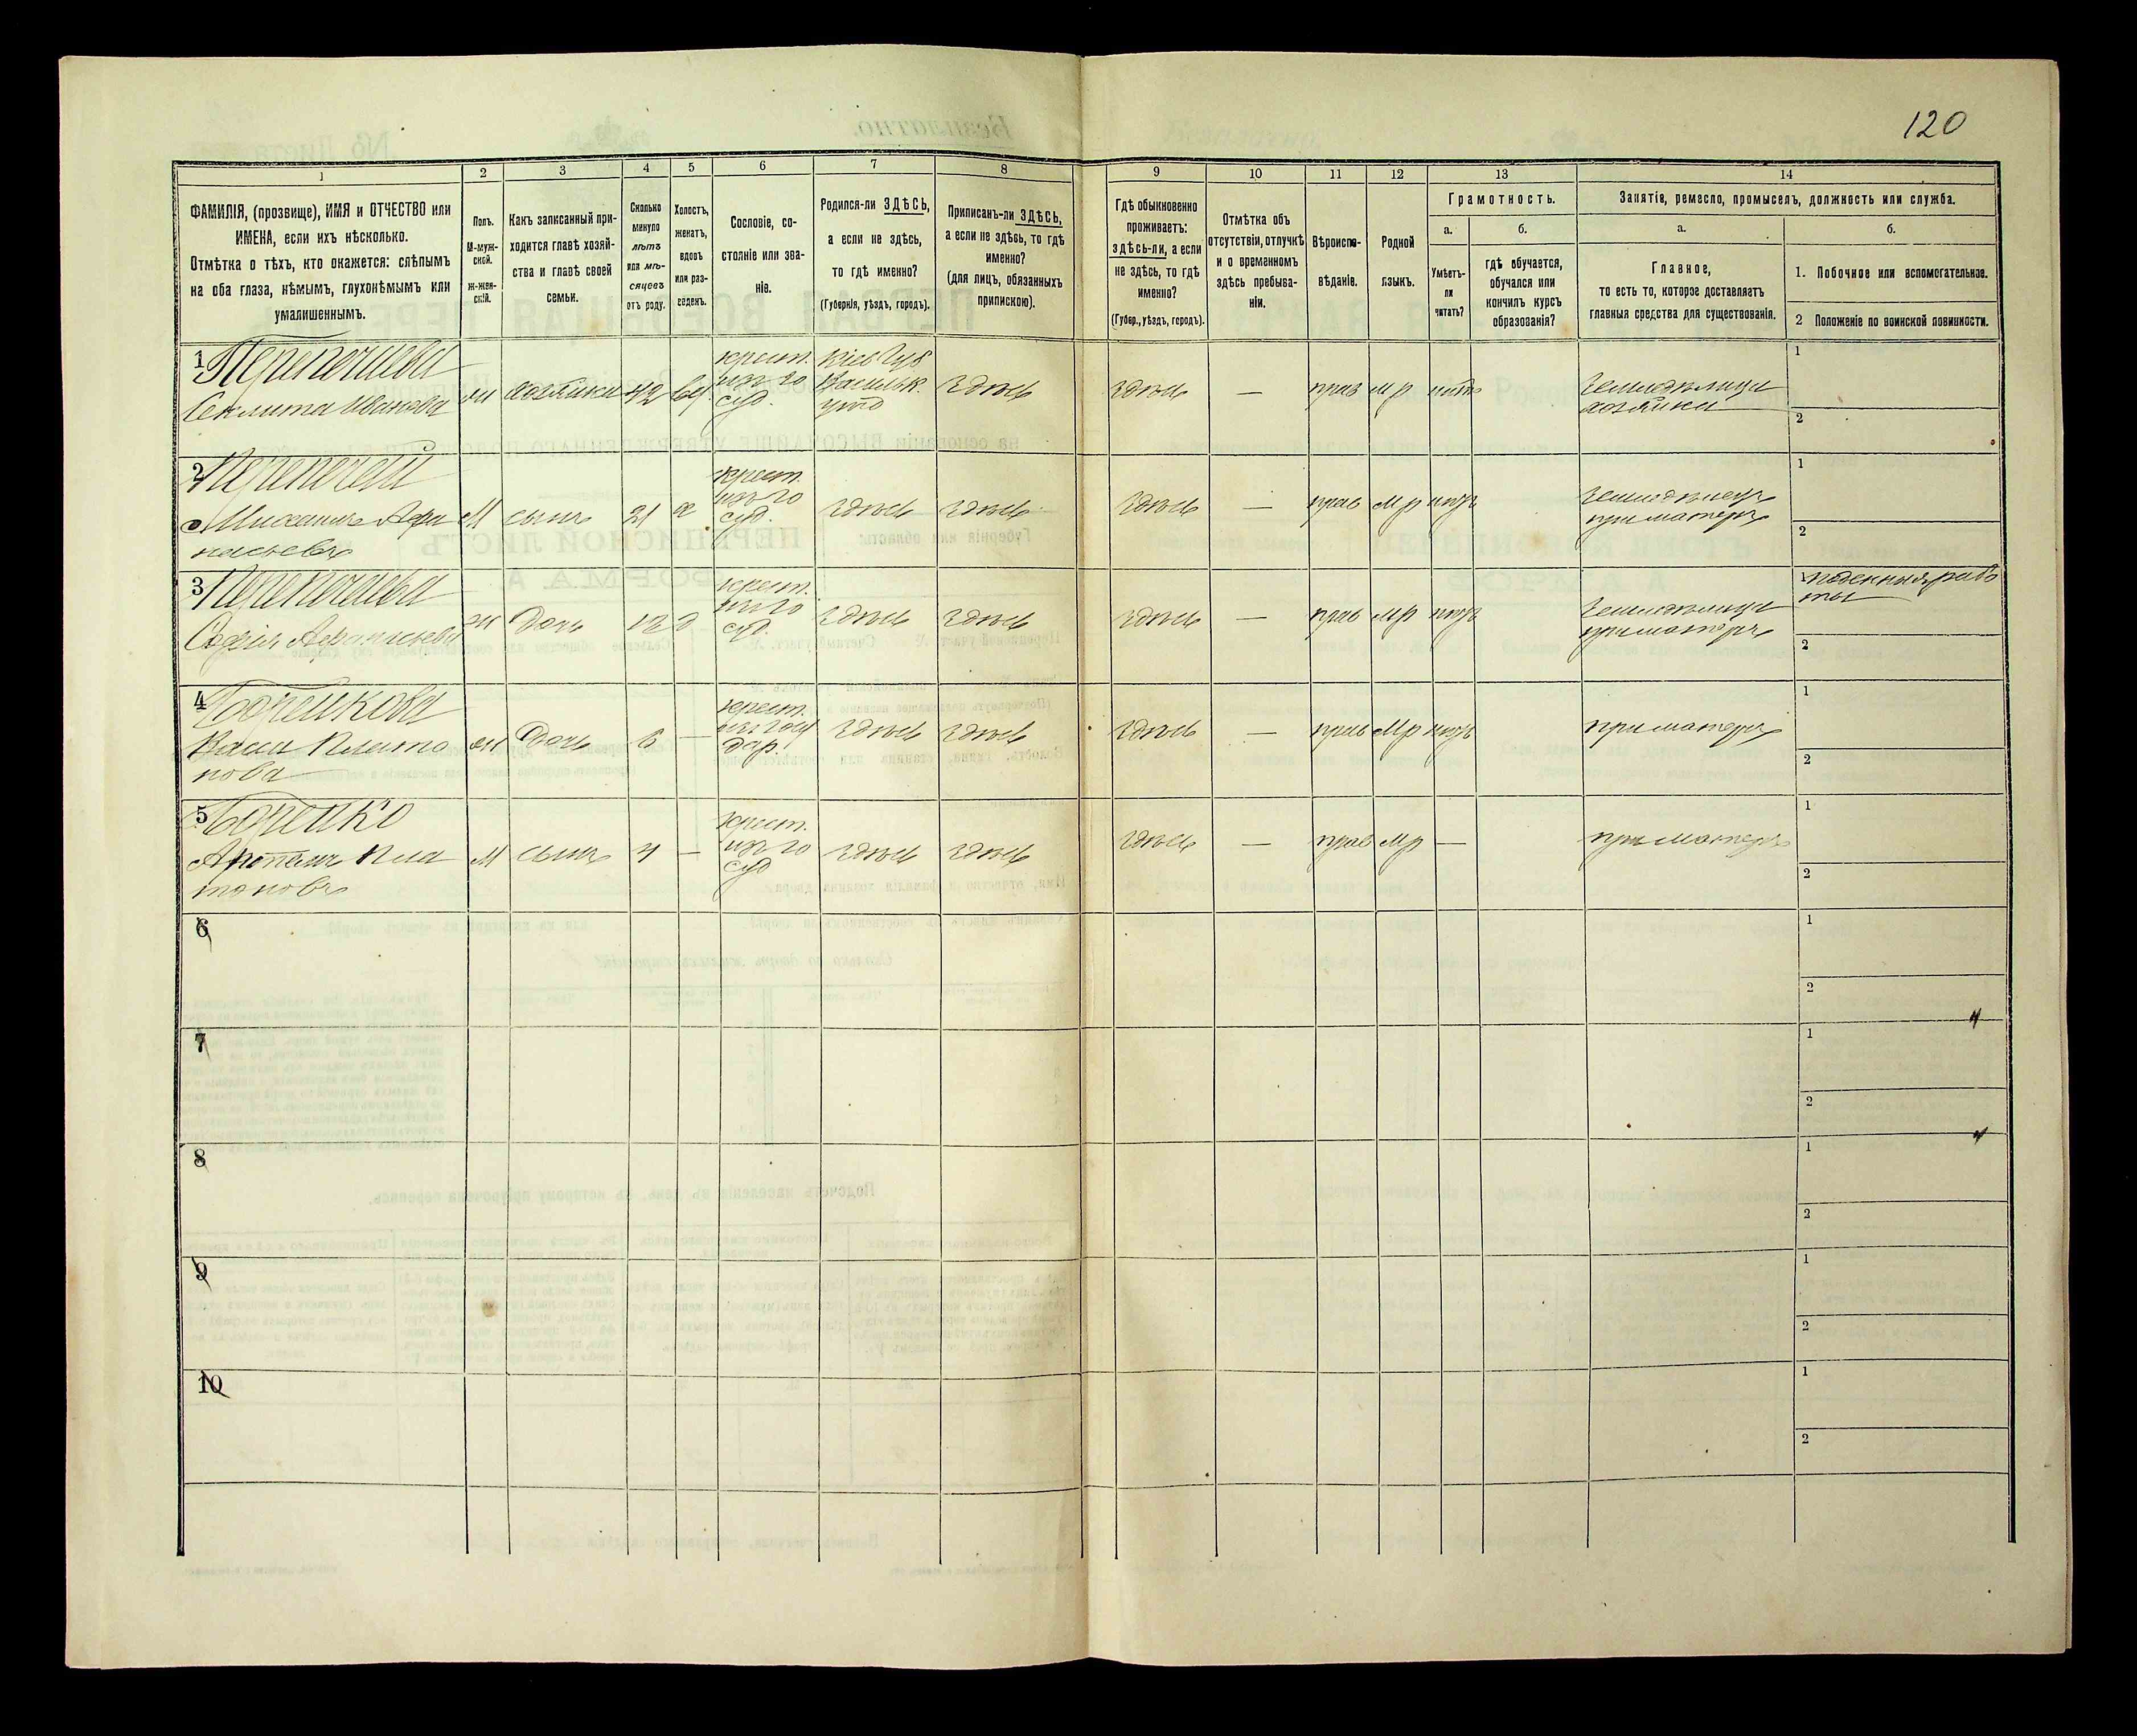 120
1 2 3 4 5 6 7 8 9 10 11 12 13 14
ФАМИЛІЯ, (прозвище), ИМЯ и ОТЧЕСТВО или
ИМЕНА, если ихъ нѣсколько.
Отмѣтка о тѣхъ, кто окажется: слѣпымъ
на оба глаза, нѣмымъ, глухонѣмымъ или
умалишеннымъ.
Полъ.
М-муж-
ской.
Ж-жен-
скій.
Какъ записанный при-
ходится главѣ хозяй-
ства и главѣ своей
семьи.
Сколько
минуло
лѣтъ
или мѣ-
сяцевъ
отъ роду.
Холостъ,
женатъ,
вдовъ
или раз-
веденъ.
Сословіе, со-
стояніе или зва-
ніе.
Родился-ли ЗДѢСЬ,
а если не здѣсь,
то гдѣ именно?
(Губернія, уѣздъ, городъ).
Приписанъ-ли ЗДѢСЬ,
а если не здѣсь, то гдѣ
именно?
(для лицъ, обязанныхъ
припискою).
Гдѣ обыкновенно
проживаетъ:
здѣсь-ли, а если
не здѣсь, то гдѣ
именно?
(Губер., уѣздъ, городъ).
Отмѣтка объ
отсутствіи, отлучкѣ
и о временномъ
здѣсь пребыва-
ніи.
Вѣроиспо-
вѣданіе.
Родной
языкъ.
Грамотность.
а.
Умѣетъ-
ли
читать?
б.
гдѣ обучается,
обучался или
кончилъ курсъ
образованія?
Занятіе, ремесло, промыселъ, должность или служба.
а.
Главное,
то есть то, которое доставляетъ
главныя средства для существованія.
б.
1. Побочное или вспомогательное.
2 Положеніе по воинской повинности.
1
Иванова
хозяйка 42 вд.
крест.
изъ го
суд.
Кіев Губ
Васильк.
здѣсь здѣсь — прав мр нѣтъ
хозяйка
1
2
2
Михаилъ Афа
насьевъ
М сынъ 21 х
крест.
изъ го
суд.
здѣсь здѣсь здѣсь — прав мр
при матери
1
2
3
Софія Афанасьева
ж дочь 12 д
крест.
изъ го
суд.
здѣсь здѣсь здѣсь — прав мр
при матери
поденныя рабо
ты
2
4
Плато
нова
ж дочь 6 —
крест.
изъ госу
дар.
здѣсь здѣсь здѣсь — прав мр
при матери
1
2
5
Пла
тоновъ
М сынъ 4 —
крест.
изъ го
суд
здѣсь здѣсь здѣсь — прав мр —
при матери
1
2
6
1
2
7
1
2
8
1
2
9
1
2
10
1
2